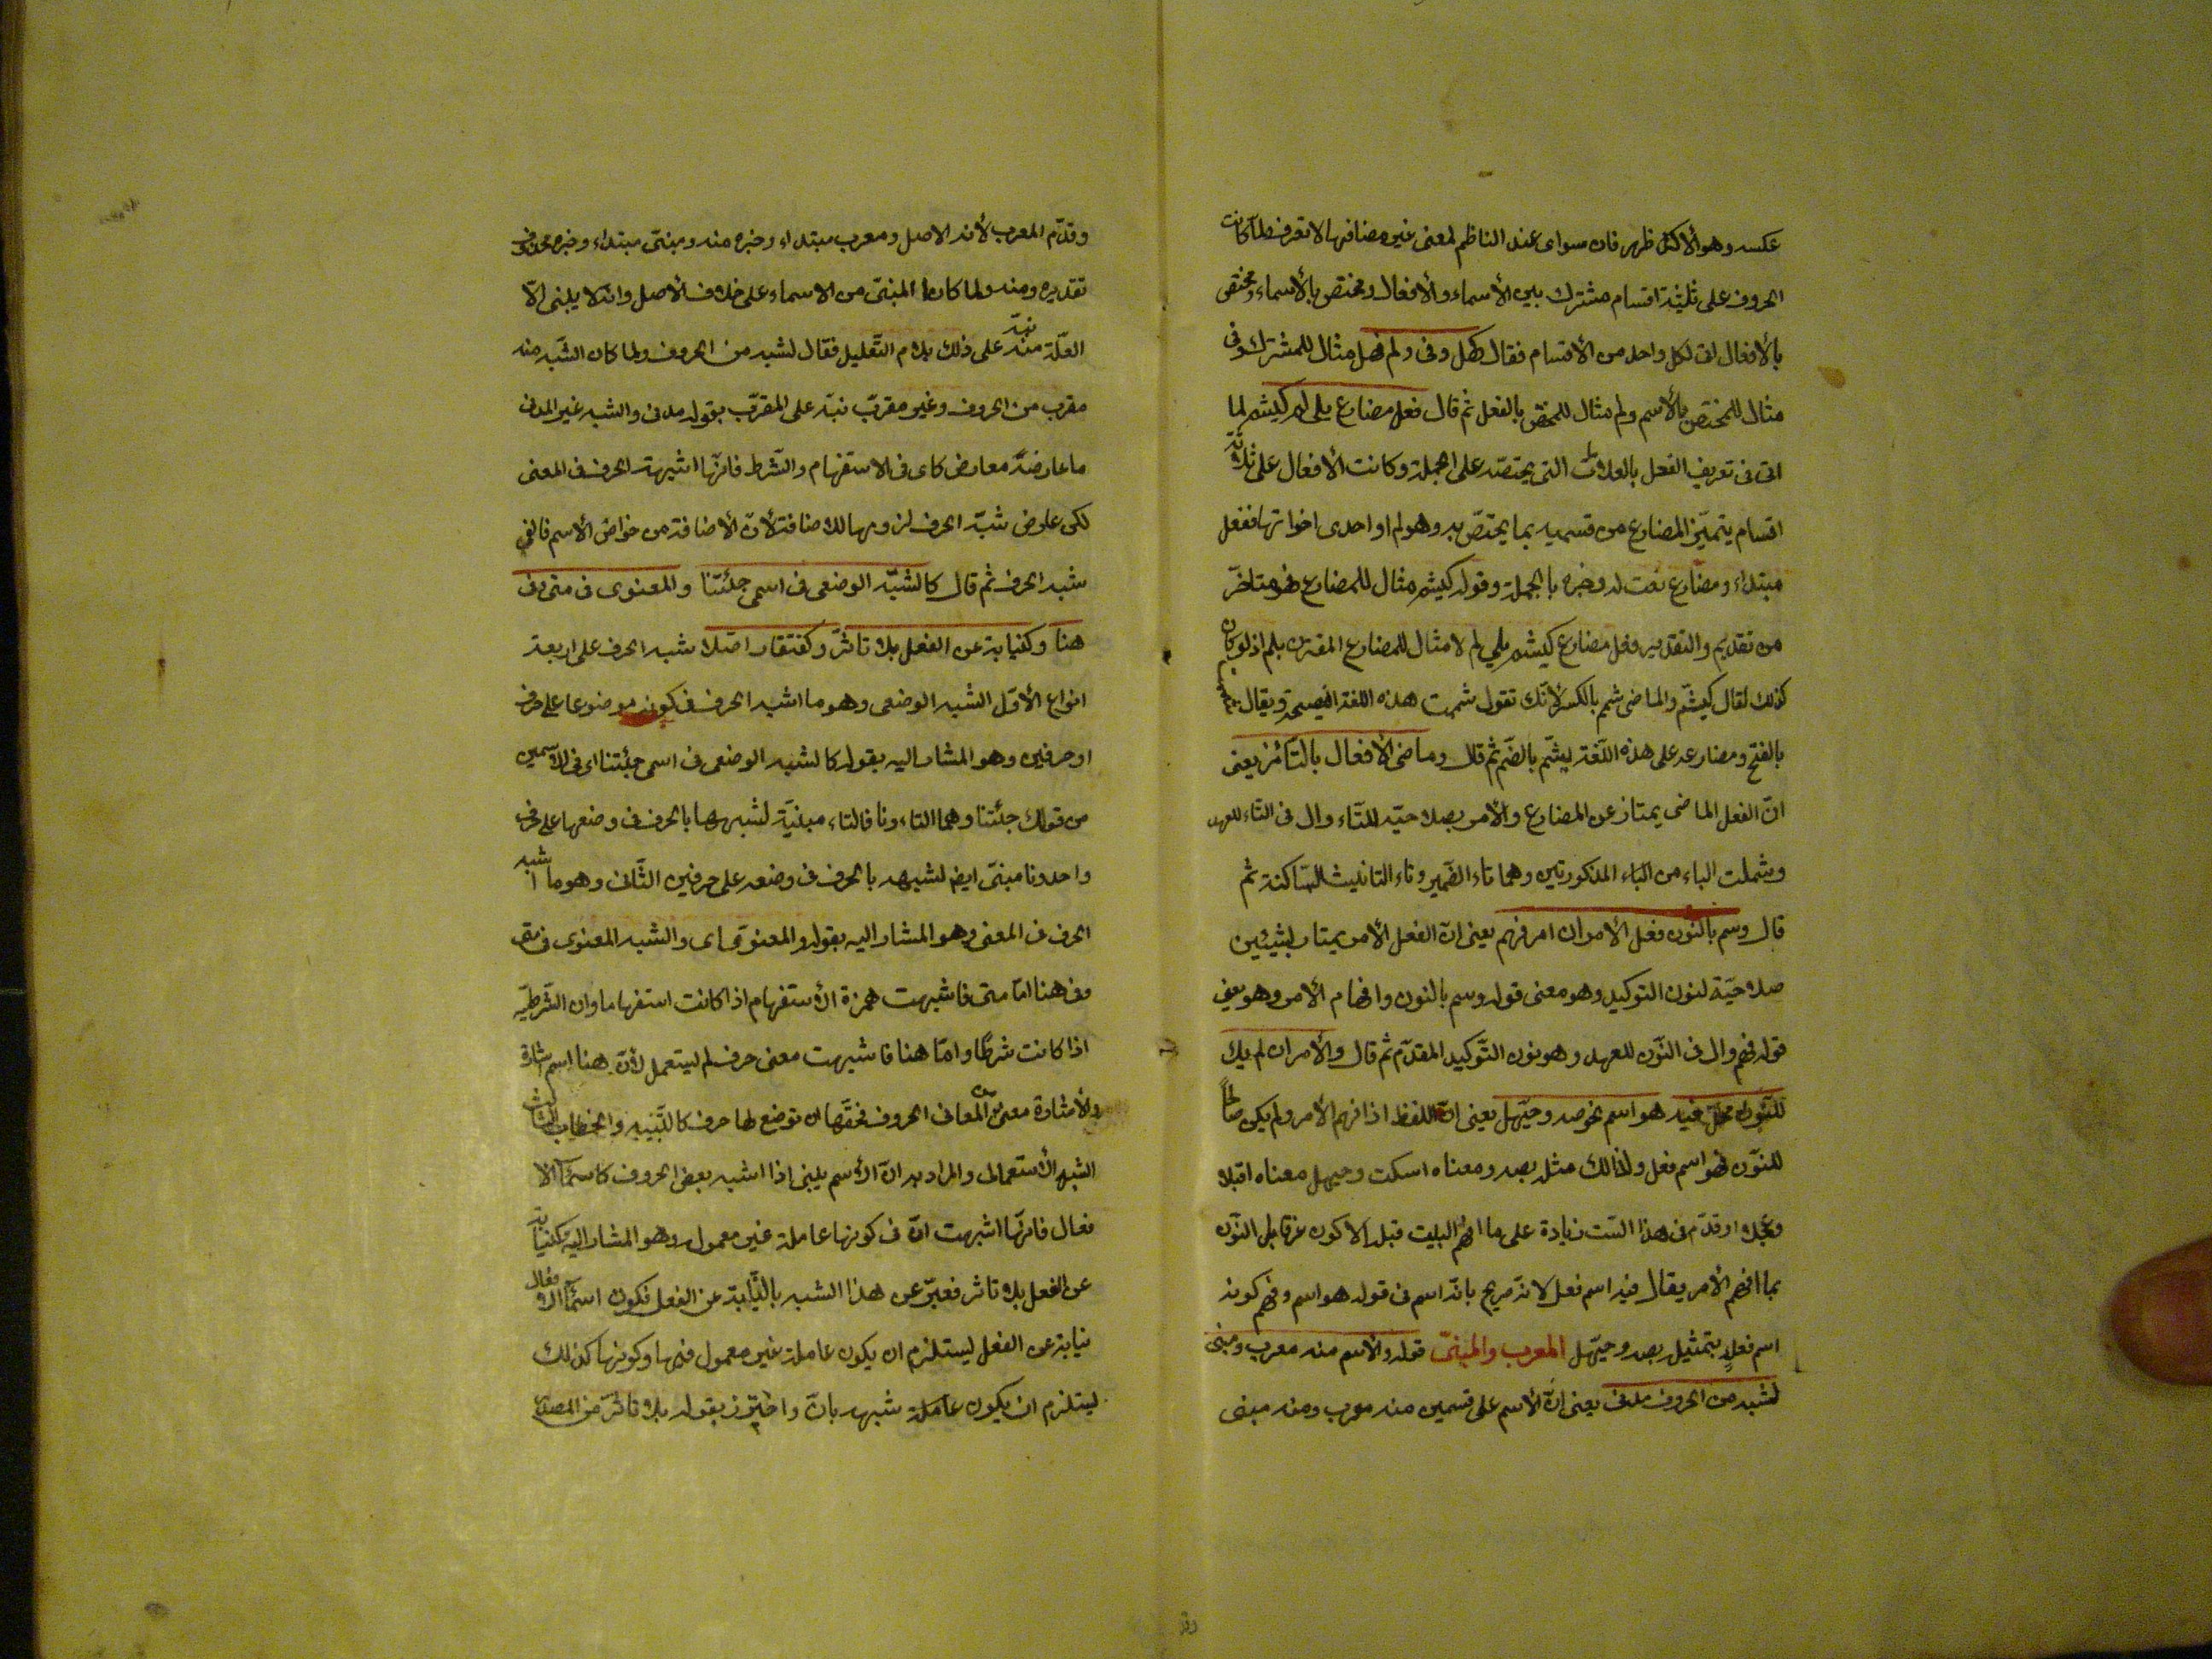 عكسه وهو الاكثل ظهر فان سواى عند الناظم لمعنى غير مضافها لا تعرف ولما كانت
الحروف على ثلثة اقسام مشترك بين الأسماء والأفعال ومختص بالأسماء ومختص
بالأفعال اتى لكل واحد من الأقسام فقال كهل وفى ولم فهل مثال للمشترك وفى
مثال للمختص بالأسم ولم مثال للمختص بالفعل ثم قال فعل مضارع يلى لم كيشم لما
اتى فى تعريف الفعل بالعلامات التى يختصه على الجملة وكانت الأفعال على ثلاثة
اقسام يتميّز المضارع من قسميه بما يختصّ به وهو لم او احدى اخواتها ففعل
مبتداء ومضارع نعت له وخبره بالجملة وقوله كيشم مثال للمضارع فهو متاخرّ
من تقديم والتقدير وفعل مضارع كيشم يلي لم لا مثال للمضارع المقترن بلم اذ لو كان
كذلك لقال كيشمّ والماضى شمم بالكسر لانّك تقول شممت هذه اللغة الفصيحة ويقال
بالفتح ومضارعه على هذه اللّغة يشمّ بالضّم ثم قال وماضى الأفعال بالتّا مُز يعنى
انّ الفعل الماضى يمتاز عن المضارع والأمر بصلاحيّه للتّاء وال فى التّاء للعهد
وشملت الباء من التاء المذكورتين وهما تاء الضّمير وتاء التانيث السّاكنة ثم
قال وسم بالنّون فعل الأمر ان امر فهم يعنى انّ الفعل الأمر يمتاز بشيئين
صلاحيّة لنون التوكيد وهو معنى قوله وسم بالنون وافهام الأمر وهو معنى
قوله فهم وال فى النّون للعهد وهو نون التّوكيد المقدّم ثم قال والأمر ان لم يك
للنّون محلّ فيه هو اسم نحو صه وحيّهل يعنى انّ اللفظ اذا فهم الأمر ولم يكن صالحًا
للنوّن فهو اسم فعل وذلك مثل بصه ومعناه اسكت وحيهل معناه اقبل او
عجّل او قدّم فى هذا البيت زيادة على ما افهم البيت قبله الا كون غير قابل النّون
بما افهم الأمر يقال فيه اسم فعل لانه صريح بانّه اسم فى قوله هو اسم وفهم كونه
اسم فعلٍ بتمثيل بصه وحيّهل المعرب والمبنىّ قوله والأسم منه معرب ومبنى
لشبه من الحروف مدنى يعنى انّ الأسم على قسمين منه معرب ومنه مبنى
وقدّم المعرب لأنه الاصل ومعرب مبتداء وخبره منه ومبنىّ مبتداء وخبره محذوف
تقديره ومنه ولما كان المبنىّ من الاسماء على خلاف الأصل وانّه لا يبنى الاّ
لعلّة نبّه على ذلك بلام التّعليل فقال لشبه من الحروف ولما كان الشّبه منه
مقرب من الحروف وغير مقربّ نبّه على المقرّب بقوله مدنى والشبه غير المدنى
ما عارضه معارض كاى فى الاستفهام والشّرط فانّها اشبهت الحرف فى المعنى
لكن عارض شبه الحرف لزومها للاضافة لأنّ الأضافة من خواصّ الأسم فالغى
شبه الحرف ثم قال كالشبّه الوضعى فى اسمى جئتنا والمعنوى فى متى وفى
هنا وكنيابة عن الفعل بلا تاثّر وكفتقار اصّلا شبه الحرف على اربعة
انواع الأوّل الشبه الوضعى وهو ما اشبه الحرف فى كونه موضوعا على حرف
او حرفين وهو المشار اليه بقوله كالشبه الوضعى فى اسمى جئتنا اى فى الأسمين
من قولك جئتنا وهما التاء ونا فالتاء مبنيّة لشبهها بالحرف فى وضعها على حرف
واحد ونا مبنىّ ايضا لشبهه بالحرف فى وضعه على حرفين الثّانى وهو ما اشبه
الحرف فى المعنى وهو المشار اليه بقوله والمعنوى اى والشبه المعنوى فى متى
وفى هنا امّا متى فاشبهت همزة الأستفهام اذا كانت استفهاما وان الشّرطيّه
اذا كانت شرطًا وامّا هنا فاشبهت معنى حرف لم يستعمل لأنّ هنا اسم اشارة
والأشارة معنى من المعانى الحروف فحقّها ان توضع لها حرف كالتّنبيه والخطاب الثالث
الشبه الأستعمالى والمراد به انّ الأسم يبنى اذا اشبه بعض الحروف كاسماء الا
فعال فانهّا اشبهت انّ فى كونها عاملة غير معمول وهو المشار اليه وكنيابة
عن الفعل بلا تاثر فعبّر عن هذا الشبه بالنّيابة عن الفعل فكون اسماء الأفعال
نيابة عن الفعل يستلزم ان يكون عاملة غير معمول فيها وكونها كذلك
يستلزم ان يكون عاملة شبهه بانّ واحترز بقوله بلا تاثّر من المصدر